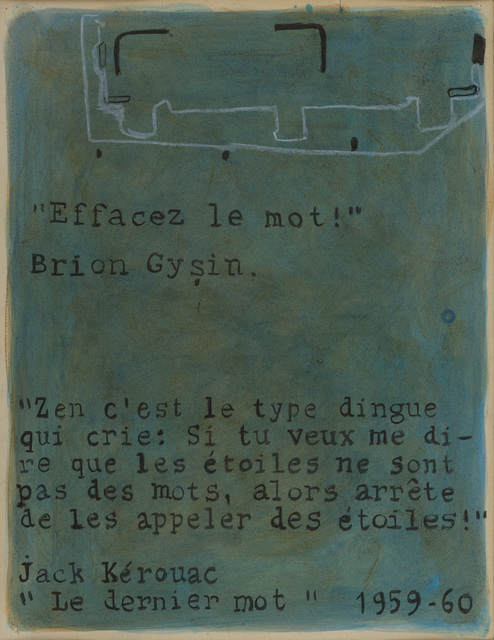 "Effacez le mot!"
Brion Gysin.
"Zen c'est le type dingue
qui crie: Si tu veux me di-
re que les étoiles ne sont
pas des mots, alors arrête
de les appeler des étoiles!"
Jack Kérouac
" Le dernier mot " 1959-60